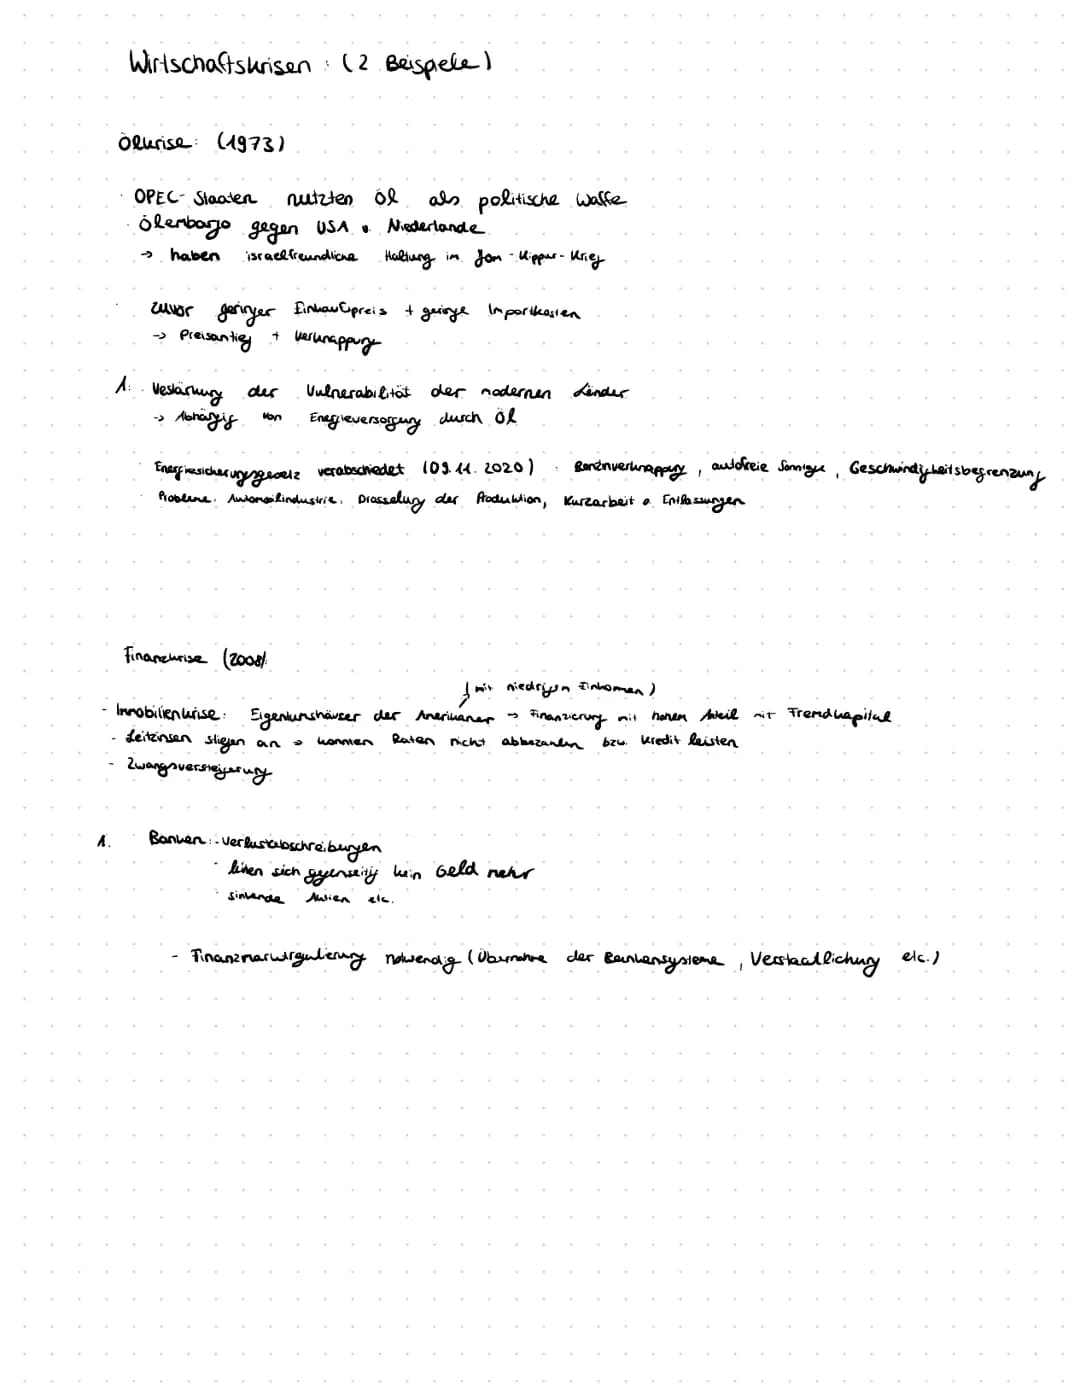 Wirtschaftskrisen : (2 Beispiele)
Ölkrise: (1973)
· OPEC-Staaten nutzten Öl als politische Waffe
· Ölembargo gegen USA & Niederlande
→ haben israelfreundliche Haltung im Jom-Kippur-Krieg
· zuvor geringer Einkaufspreis + geringe Importkosten
→ Preisantieg + Verknappung
1. · Vestärkung der Vulnerabilität der modernen Länder
→ Abhängig von Energieversorgung durch Öl
· Energiesicherungsgesetz verabschiedet (09.11.2020) · Benzinverknappung, autofreie Sonntage, Geschwindigkeitsbegrenzung
· Probleme: Automobilindustrie: Drosselung der Produktion, Kurzarbeit & Entlassungen
Finanzkrise (2008):
(mit niedrigem Einkommen)
- Immobilienkrise: Eigentumshäuser der Amerikaner → Finanzierung mit hohem Anteil mit Fremdkapital
- Leitzinsen stiegen an → konnten Raten nicht abbezahlen bzw. Kredit leisten
- Zwangsversteigerung
1. Banken: · Verlustabschreibungen
· leihen sich gegenseitig kein Geld mehr
· sinkende Aktien etc.
- Finanzmarktregulierung notwendig (Übernahme der Bankensysteme, Verstaatlichung etc.)